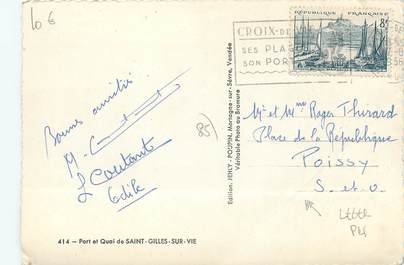 10 €
RÉPUBLIQUE FRANÇAISE
8f
CROIX-DE
SES PLAG
SON PORT
Bonnes amitiés
M. Coutant
L Coutante
Edile
85
Edition JEHLY-POUPIN, Mortagne-sur-Sèvre, Vendée
Véritable Photo au Bromure
Mr et Mme Roger Thirard
Place de la République
Poissy
S. et O.
414 - Port et Quai de SAINT-GILLES-SUR-VIE